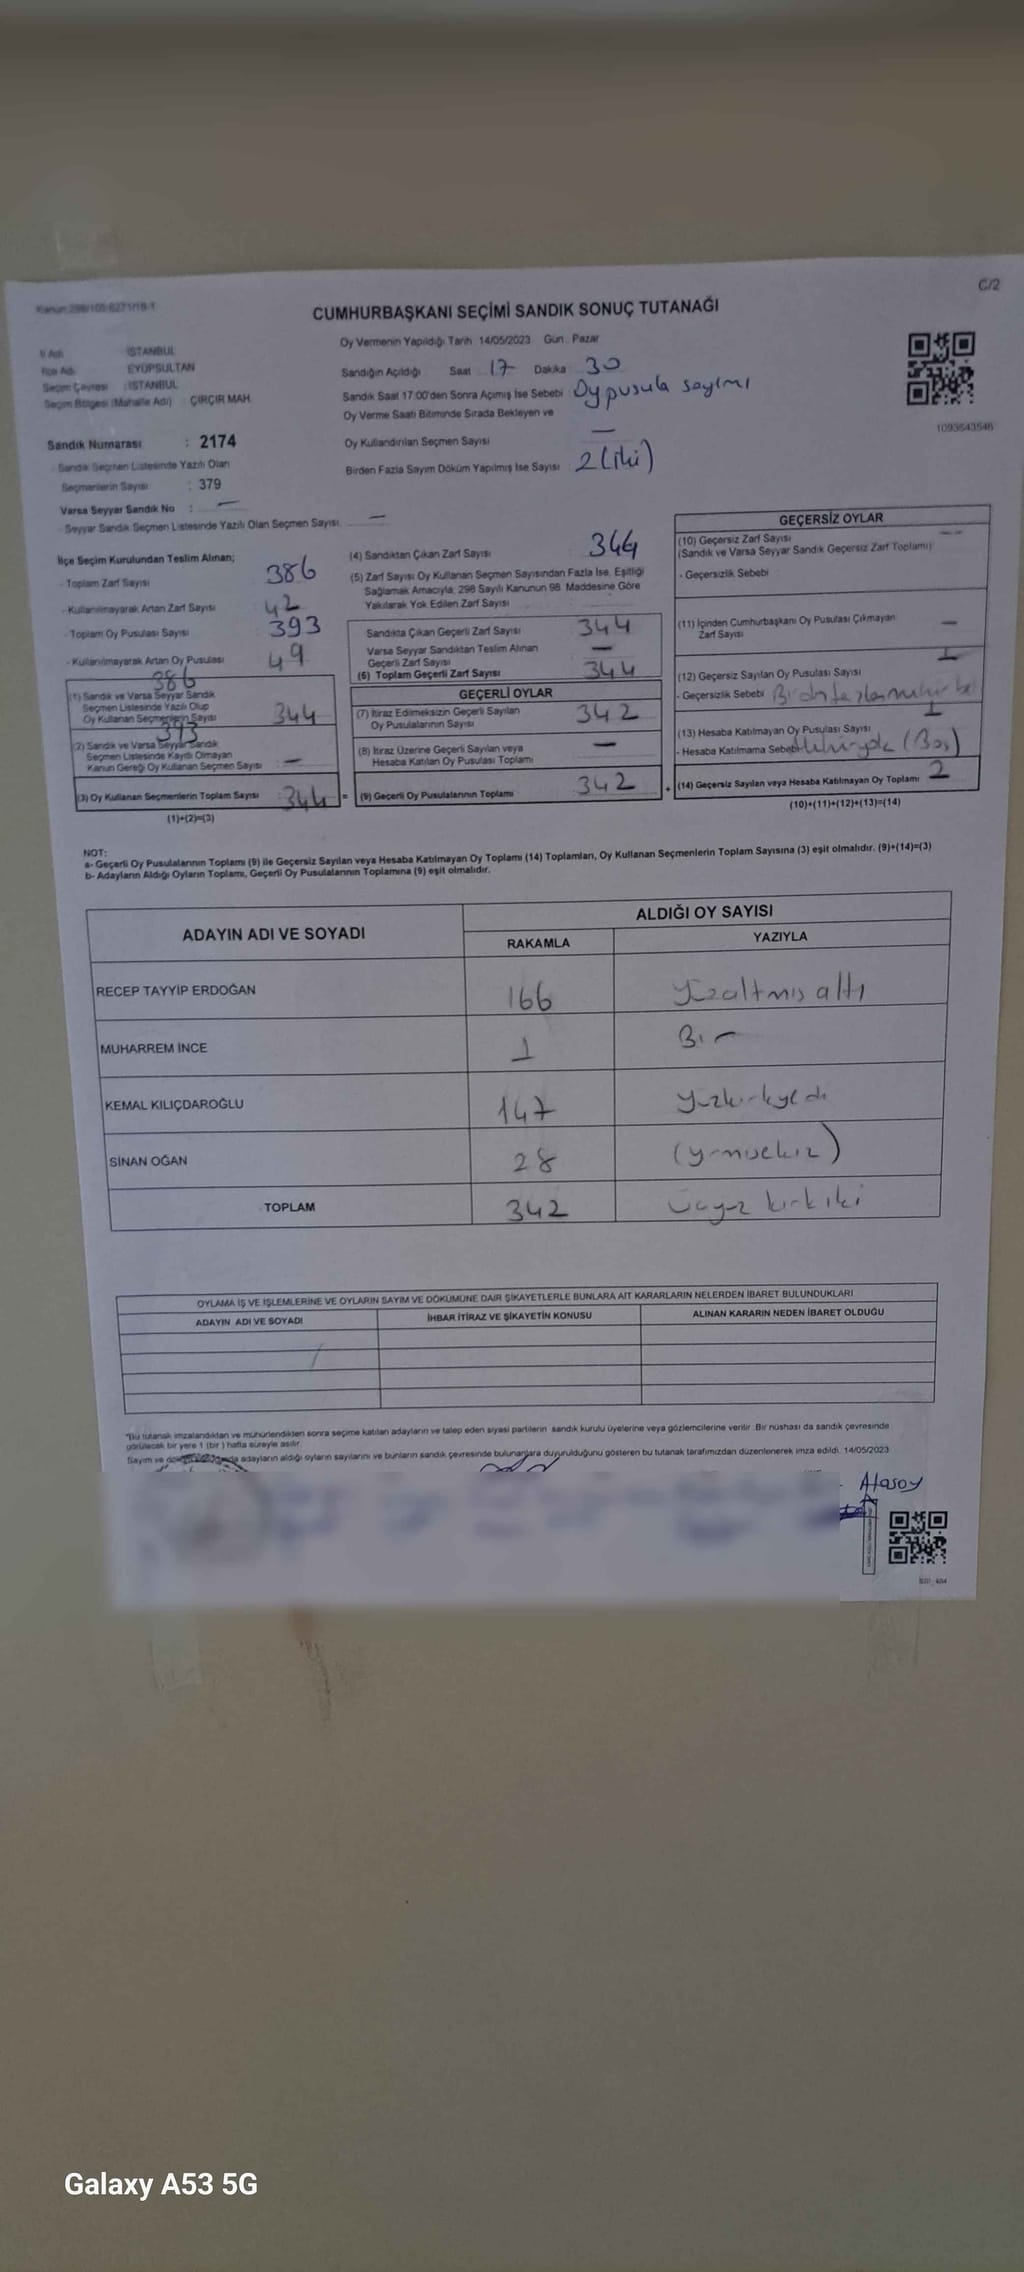 C/2
Kanun:298/105-6271/18-1
CUMHURBAŞKANI SEÇİMİ SANDIK SONUÇ TUTANAĞI
İl Adı : İSTANBUL
İlçe Adı : EYÜPSULTAN
Seçim Çevresi : İSTANBUL
Seçim Bölgesi (Mahalle Adı) : ÇIRÇIR MAH.
Sandık Numarası : 2174
- Sandık Seçmen Listesinde Yazılı Olan
Seçmenlerin Sayısı : 379
Varsa Seyyar Sandık No : —
- Seyyar Sandık Seçmen Listesinde Yazılı Olan Seçmen Sayısı —
Oy Vermenin Yapıldığı Tarih 14/05/2023 Gün Pazar
Sandığın Açıldığı Saat 17 Dakika 30
Sandık Saat 17:00'den Sonra Açımış İse Sebebi Oy pusula sayımı
Oy Verme Saati Bitiminde Sırada Bekleyen ve
Oy Kullandırılan Seçmen Sayısı —
Birden Fazla Sayım Döküm Yapılmış İse Sayısı 2 (iki)
1093543546
İlçe Seçim Kurulundan Teslim Alınan;
- Toplam Zarf Sayısı 386
- Kullanılmayarak Artan Zarf Sayısı 42
- Toplam Oy Pusulası Sayısı 393
- Kullanılmayarak Artan Oy Pusulası 49
386
(1) Sandık ve Varsa Seyyar Sandık
Seçmen Listesinde Yazılı Olup
Oy Kullanan Seçmenlerin Sayısı 344
393
(2) Sandık ve Varsa Seyyar Sandık
Seçmen Listesinde Kaydı Olmayan
Kanun Gereği Oy Kullanan Seçmen Sayısı —
(3) Oy Kullanan Seçmenlerin Toplam Sayısı 344 =
(1)+(2)=(3)
(4) Sandıktan Çıkan Zarf Sayısı 344
(5) Zarf Sayısı Oy Kullanan Seçmen Sayısından Fazla İse, Eşitliği
Sağlamak Amacıyla, 298 Sayılı Kanunun 98. Maddesine Göre
Yakılarak Yok Edilen Zarf Sayısı
Sandıkta Çıkan Geçerli Zarf Sayısı 344
Varsa Seyyar Sandıktan Teslim Alınan
Geçerli Zarf Sayısı —
(6) Toplam Geçerli Zarf Sayısı 344
GEÇERLİ OYLAR
(7) İtiraz Edilmeksizin Geçerli Sayılan
Oy Pusulalarının Sayısı 342
(8) İtiraz Üzerine Geçerli Sayılan veya
Hesaba Katılan Oy Pusulası Toplamı —
(9) Geçerli Oy Pusulalarının Toplamı 342 +
GEÇERSİZ OYLAR
(10) Geçersiz Zarf Sayısı —
(Sandık ve Varsa Seyyar Sandık Geçersiz Zarf Toplamı)
- Geçersizlik Sebebi
(11) İçinden Cumhurbaşkanı Oy Pusulası Çıkmayan
Zarf Sayısı —
(12) Geçersiz Sayılan Oy Pusulası Sayısı 1
- Geçersizlik Sebebi
(13) Hesaba Katılmayan Oy Pusulası Sayısı 1
- Hesaba Katılmama Sebebi Mühüryok (Boş)
(14) Geçersiz Sayılan veya Hesaba Katılmayan Oy Toplamı 2
(10)+(11)+(12)+(13)=(14)
NOT:
a- Geçerli Oy Pusulalarının Toplamı (9) ile Geçersiz Sayılan veya Hesaba Katılmayan Oy Toplamı (14) Toplamları, Oy Kullanan Seçmenlerin Toplam Sayısına (3) eşit olmalıdır. (9)+(14)=(3)
b- Adayların Aldığı Oyların Toplamı, Geçerli Oy Pusulalarının Toplamına (9) eşit olmalıdır.
ADAYIN ADI VE SOYADI ALDIĞI OY SAYISI
RAKAMLA YAZIYLA
RECEP TAYYİP ERDOĞAN 166 Yüzaltmış altı
MUHARREM İNCE 1 Bir
KEMAL KILIÇDAROĞLU 147 Yüzkırkyedi
SİNAN OĞAN 28 (yirmisekiz)
TOPLAM 342 üçyüz kırkiki
OYLAMA İŞ VE İŞLEMLERİNE VE OYLARIN SAYIM VE DÖKÜMÜNE DAİR ŞİKAYETLERLE BUNLARA AİT KARARLARIN NELERDEN İBARET BULUNDUKLARI
ADAYIN ADI VE SOYADI İHBAR İTİRAZ VE ŞİKAYETİN KONUSU ALINAN KARARIN NEDEN İBARET OLDUĞU
"Bu tutanak imzalandıktan ve mühürlendikten sonra seçime katılan adayların ve talep eden siyasi partilerin sandık kurulu üyelerine veya gözlemcilerine verilir. Bir nüshası da sandık çevresinde
görülecek bir yere 1 (bir) hafta süreyle asılır.
Sayım ve adayların aldığı oyların sayılarını ve bunların sandık çevresinde bulunanlara duyurulduğunu gösteren bu tutanak tarafımızdan düzenlenerek imza edildi. 14/05/2023
Atasoy
Galaxy A53 5G